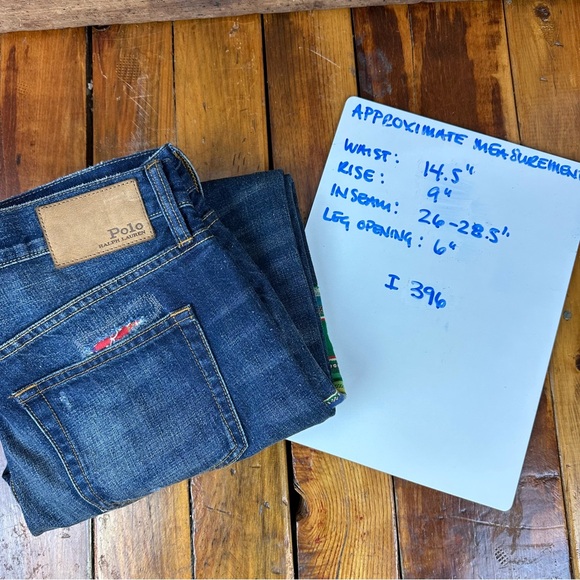 Polo
RALPH LAUREN
APPROXIMATE MEASUREMENT
WAIST: 14.5"
RISE: 9"
INSEAM: 26-28.5"
LEG OPENING: 6"
I 396